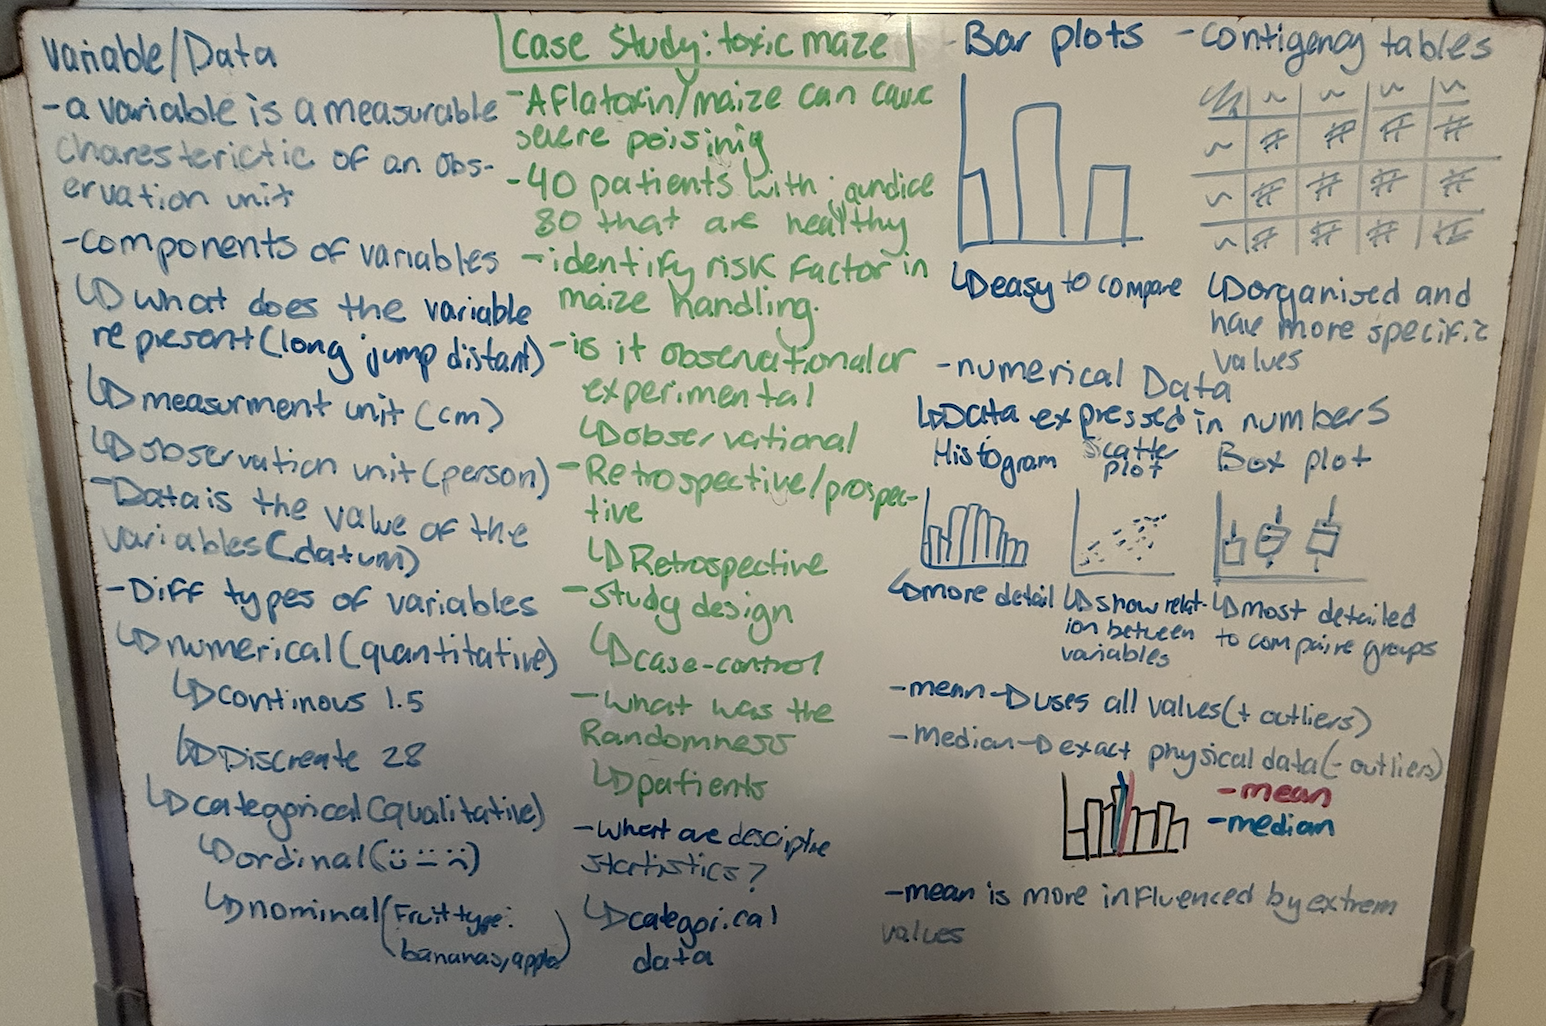 Variable/Data
-a variable is a measurable
charesterictic of an obs-
ervation unit
-components of variables
↳what does the variable
represent (long jump distant)
↳measurment unit (cm)
↳observation unit (person)
-Data is the value of the
variables (datum)
-Diff types of variables
↳numerical (quantitative)
↳continous 1.5
↳Discreate 28
↳categorical (qualitative)
↳ordinal (
↳nominal (Fruit type:
bananas, apple)
Case Study: toxic maze
-Aflatoxin/maize can cause
severe poisinig
-40 patients with jaundice
80 that are healthy
-identify risk factor in
maize handling.
-is it observational or
experimental
↳observational
-Retrospective/prospec-
tive
↳Retrospective
-study design
↳case-control
-what was the
Randomness
↳patients
-what are desciptive
startistics?
↳categorical
data
-Bar plots
↳easy to compare
-contigency tables
↳organised and
have more specific
values
-numerical Data
↳Data expressed in numbers
Histogram
↳more detail
Scatter
plot
↳show relat-
ion between
variables
Box plot
↳most detailed
to compaire groups
-mean→uses all values (+ outliers)
-median→exact physical data (- outliers)
-mean
-median
-mean is more influenced by extrem
values